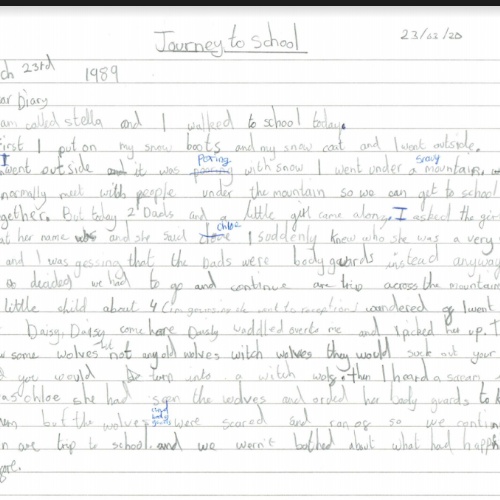 Journey to School
23/02/20
ch 23rd 1989
ar Diary
am called stella and I walked to school today.
irst I put on my snow boots and my snow coat and I went outside.
I Poring snowy
went outside and it was with snow I went under a mountain.
normally meet with people under the mountain so we can get to school
gether. But today 2 Dads and a little girl came along. I asked the girl
at her name was and she said chloe I suddenly knew who she was a very
and I was gessing that the Dads were body guards instead anyway
so decided we had to go and continue are trip across the mountain
little child about 4 (im gessing she went to reception) wandered I went
Daisy, Daisy come here waddled over to me and I picked her up. I
w some wolves not any old wolves witch wolves they would suck out your
you would turn into a witch then I heard a scream
as chloe she had seen the wolves and orded her body guards to
but the wolves were scared and ran of so we contin
n are trip to school. and we wern't bothed about what had happ
ore.